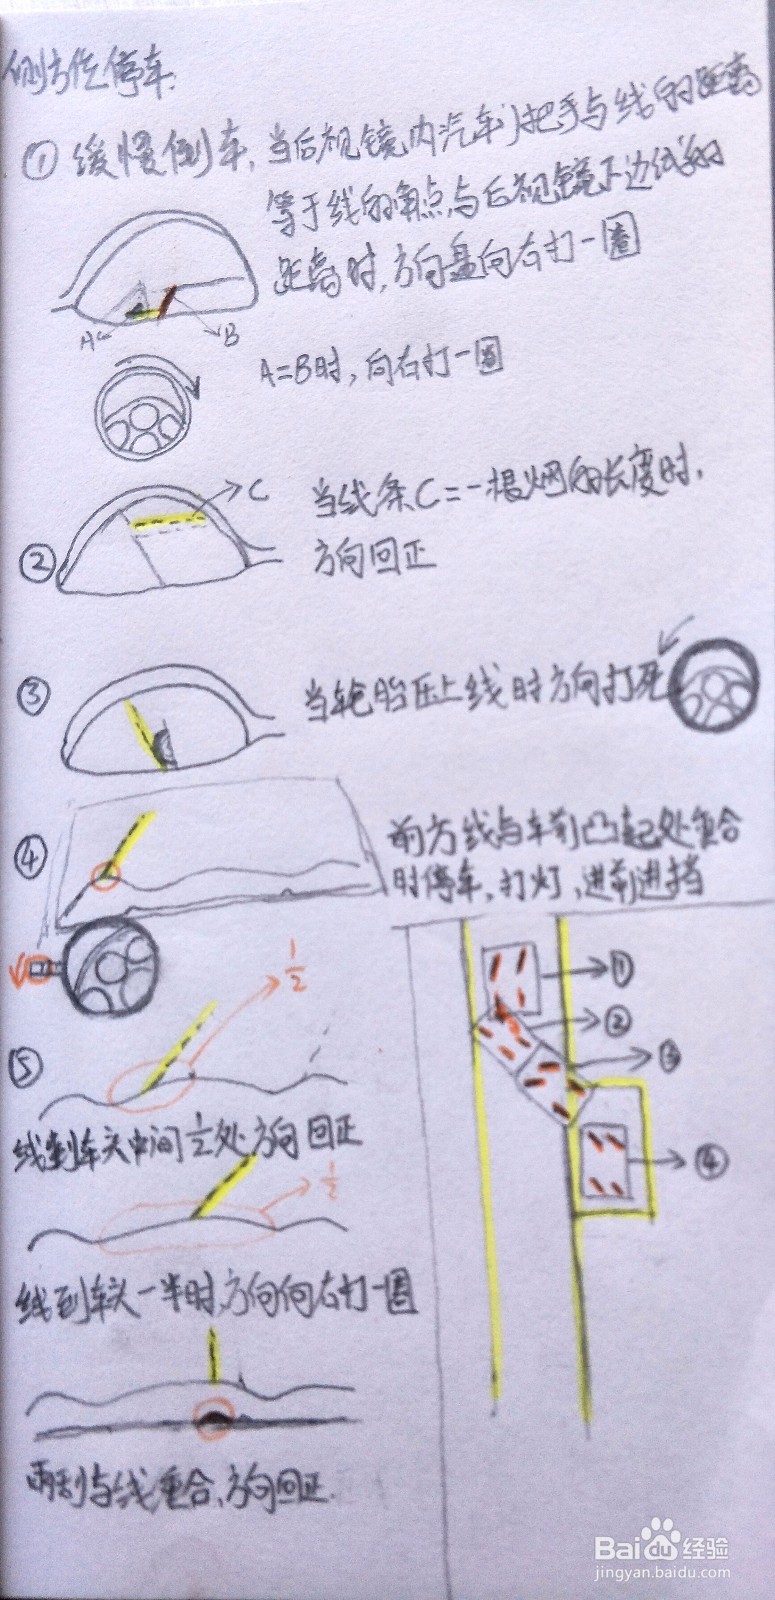 侧方位停车.
① 缓慢倒车,当后视镜内汽车门把手与线的距离
等于线的角点与后视镜下边线的
距离时,方向盘向右打一圈
A
B
A=B时,向右打一圈
C
②
当线条C=一根烟的长度时,
方向回正
③
当轮胎压上线时方向打死
④
前方线与车前凸起处重合
时停车,打灯,进前进挡
1/2
⑤
线到车头中间½处方向回正
1/2
线到车头一半时,方向向右打一圈
雨刮与线重合,方向回正.
①
②
③
④
Baidu经验
jingyan.baidu.com